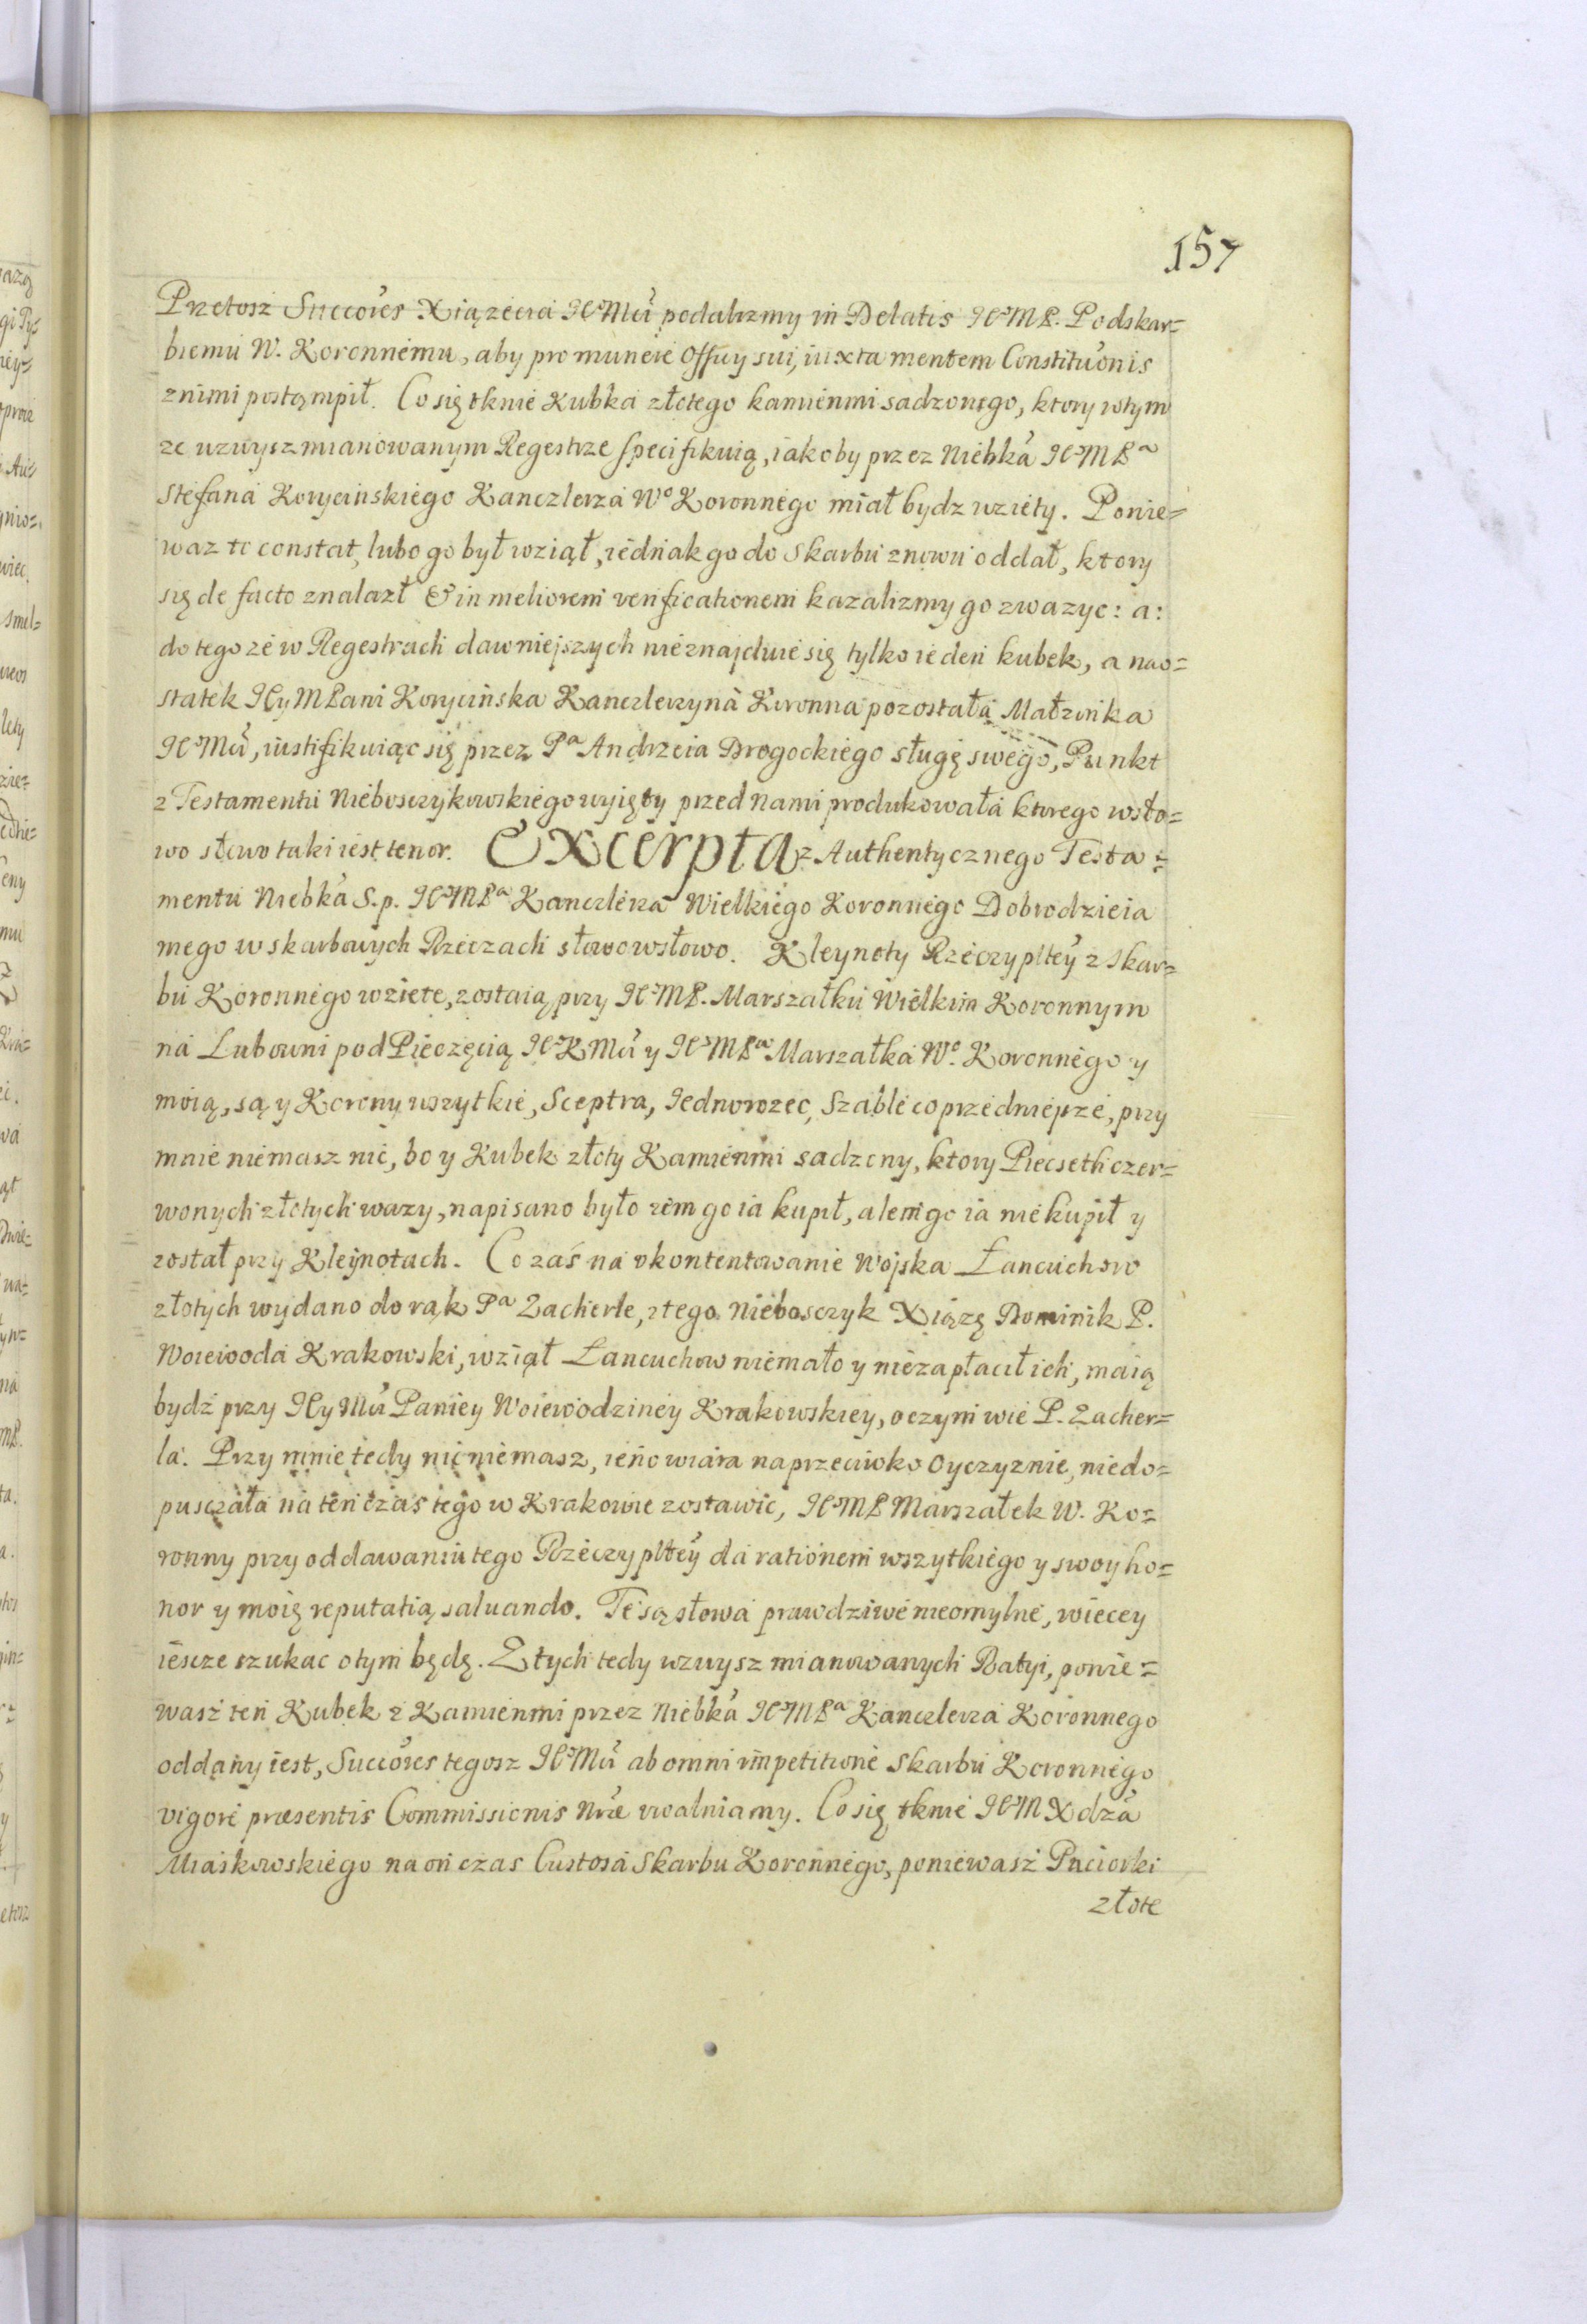 157
Przetosz Succores Xiązecia JeMći podalizmy in Delatis JeMP. Podskar=
biemu W. Koronnemu, aby pro munere Officy sui, iuxta mentem Constitućonis
znimi postąmpił. Co się tknie Kubka złotego kamienmi sadzonego, ktory wtym
ze wzwysz mianowanym Regestrze specifikuią, iakoby przez Niebká JeMPa
Stefana Korycinskiego Kanclerza Wo Koronnego miał bydz wziety. Ponie=
waz to constat, lubo go był wziął, iednak go do Skarbu znowu oddał, ktory
się de facto znalazł & in meliorem verificationem kazalizmy go zwazyc: a:
do tego ze w Regestrach dawniejszych nieznajduie się tylko ieden kubek, a nao=
statek JeyMPani Korycinska Kanclerzyna Koronna pozostała Małzonka
JeMći, iustifikuiąc się przez Pa Andrzeia Drogockiego sługę swego, Punkt
z Testamentu Nieboszczykowskiego wyięty przed nami produkowała ktorego wsło=
wo słowo taki iest tenor. Excerpta z Authentycznego Testa=
mentu Niebká S.p. JeMPa Kanclerza Wielkiego Koronnego Dobrodzieia
mego w skarbowych Rzeczach słowo wsłowo. Kleynoty Rzeczypltey z Skar=
bu Koronnego wziete, zostaią przy JeMP. Marszałku Wielkim Koronnym
na Lubowni pod Pieczęcią JeKMći y JeMPa Marszałka Wo. Koronnego y
moią, są y Korony wszytkie, Sceptra, Jednorozec, Szable coprzedniejsze, przy
mnie niemasz nic, bo y Kubek złoty Kamienmi sadzony, ktory Piecseth czer=
wonych złotych wazy, napisano było zem go ia kupił, alem go ia nie kupił y
został przy Klejnotach. Co zaś na vkontentowanie Wojska Łancuchow
złotych wydano do rąk Pa Zacherle, z tego Nieboszczyk Xiązę Dominik P.
Woiewoda Krakowski, wziął Łancuchow niemało y niezapłacił ich, maią
bydź przy JeyMći Paniey Woiewodziney Krakowskiey, o czym wie P. Zacher=
la. Przy mnie tedy nic niemasz, ieno wiara naprzeciwko Oyczyznie, niedo=
pusczała na ten czas tego w Krakowie zostawic, JeMP Marszałek W. Ko=
ronny przy oddawaniu tego Rzeczypltey da rationem wszytkiego y swoy ho=
nor y moię reputatią saluando. Te są słowa prawdziwe nieomylne, wiecey
iescze szukac otym będę. Z tych tedy wzwysz mianowanych Ratyi, ponie=
wasz ten Kubek z Kamienmi przez Niebká JeMPa Kanclerza Koronnego
oddany iest, Succores tegosz JeMći ab omni impetitione Skarbu Koronnego
vigore præsentis Commissionis Nræ vwalniamy. Co się tknie JeM Xdza
Miaskowskiego na on czas Custosa Skarbu Koronnego, poniewasz Paciorki
złote